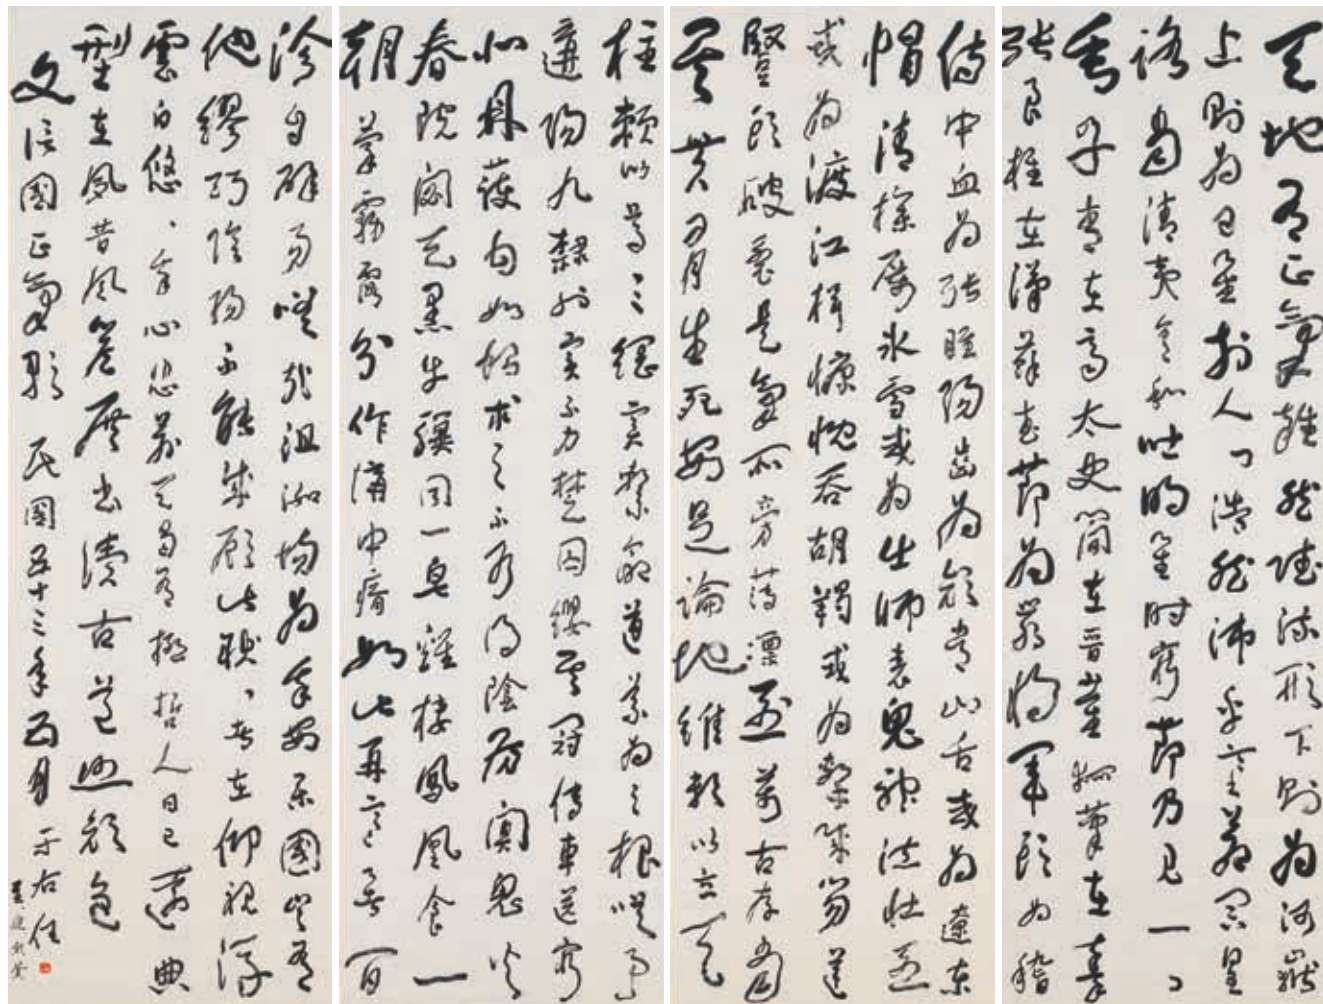 天地有正氣雜然賦流形下則為河嶽
上則為日星於人曰浩然沛乎塞蒼冥皇
路當清夷含和吐明庭時窮節乃見一一
垂丹青在齊太史簡在晉董狐筆在秦
張良椎在漢蘇武節為嚴將軍頭為嵇
侍中血為張睢陽齒為顏常山舌或為遼東
帽清操厲冰雪或為出師表鬼神泣壯烈
或為渡江楫慷慨吞胡羯或為擊賊笏逆
豎頭破裂是氣所旁薄凜烈萬古存當
其貫日月生死安足論地維賴以立天
柱賴以尊三綱實繫命道義為之根嗟予
遘陽九隸也實不力楚囚纓其冠傳車送窮
北鼎鑊甘如飴求之不可得陰房闃鬼火
春院閟天黑牛驥同一皂雞棲鳳凰食一
朝蒙霧露分作溝中瘠如此再寒暑百
沴自辟易嗟哉沮洳場為余安樂國豈有
他繆巧陰陽不能賊顧此耿、者在仰視浮
雲白悠、余心悲蒼天曷有極哲人日已遠典
型在夙昔風簷展書讀古道照顏色
文信國正氣歌 民國五十三年 月 于右任